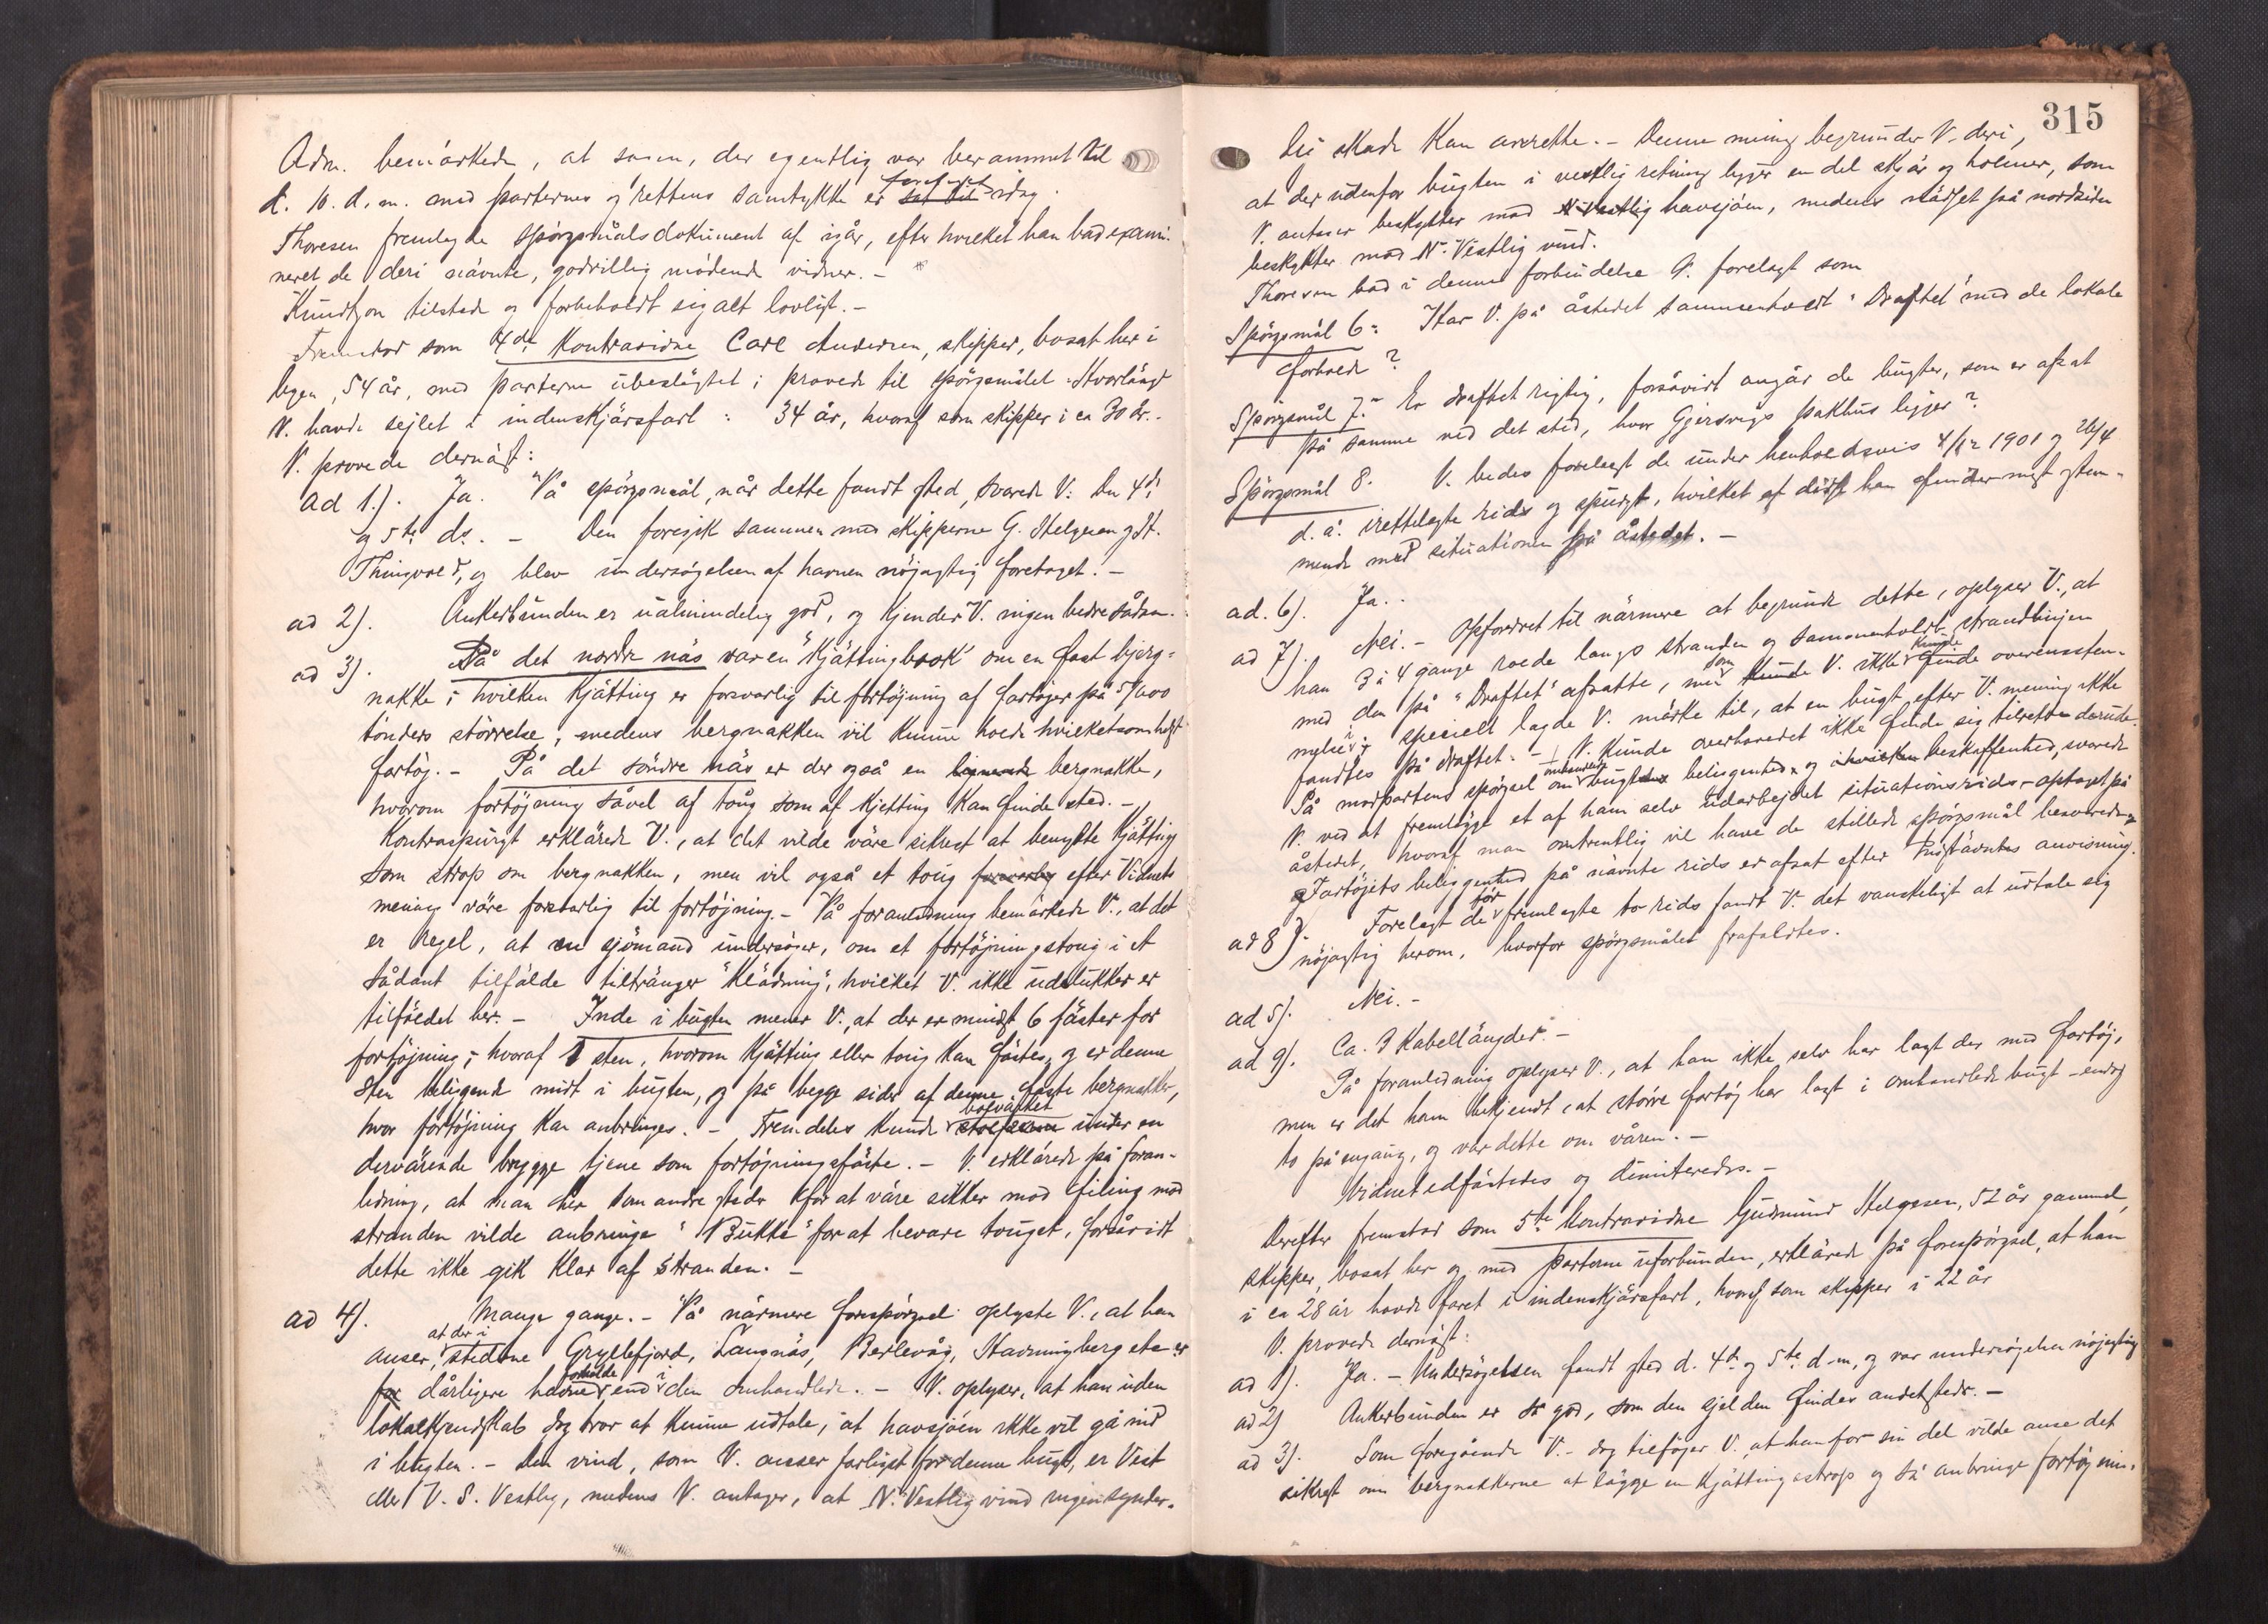 Adm. bemärkede, at sagen, der egentlig var berammet til
d. 10. d. m. med parternes og rettens samtykke er foretaget idag.
Thoresen fremlagde spörgsmålsdokument af igår, efter hvilket han bad exami-
neret de deri nävnte, godvillig mödende vidner. -
Knudtzon tilstede og forbeholdt sig alt lovligt. -
Fremstod som 4de Kontravidne Carl Andersen, skipper, bosat her i
byen, 54 år, med parterne ubeslägtet; provede til spörgsmålet: Hvorlänge
V. havde sejlet i indenskjärsfart: 34 år, hvoraf som skipper i ca 30 år.
V. provede dernäst:
ad 1). Ja. På spörgsmål, når dette fandt sted, svarede V: Den 4de
og 5te ds. - Den foregik sammen med skipperne G. Helgesen og H.
Thingvold, og blev undersögelsen af havnen nöjagtig foretaget. -
ad 2). Ankerbunden er ualmindelig god, og kjender V. ingen bedre sådan.
ad 3). På det nordre näs var en "Kjättingbrok" om en fast bjerg-
nakke; hvilken kjätting er forsvarlig til fortöjning af fartöjer på 5/600
tönders störrelse, medens bergnakken vil kunne holde hvilketsomhelst
fartöj. - På det söndre näs er der også en lignende bergnakke,
hvorom fortöjning såvel af toug som af kjetting kan finde sted. -
Kontraspurgt erklärede V., at det vilde väre sikrest at benytte kjätting
som strop om bergnakken, men vil også et toug efter Vidnets
mening väre forsvarlig til fortöjning. - På foranledning bemärkede V., at det
er regel, at en sjömand undersöger, om et fortöjningstoug i et
sådant tilfälde tiltränger "Klädning", hvilket V. ikke udelukker er
tilfäldet her. - Inde i bugten mener V., at der er mindst 6 fäster for
fortöjning; hvoraf 1 sten, hvorom kjätting eller toug kan fästes, og er denne
sten beliggende midt i bugten, og på begge sider af denne faste bergnakker,
hvor fortöjning kan anbringes. - Fremdeles kunde bolvärket under en
dervärende brygge tjene som fortöjningsfäste. - V. erklärede på foran-
ledning, at man her som andre steder for at väre sikker mod filing mod
stranden vilde anbringe "Bukke" for at bevare touget, forsåvidt
dette ikke gik klar af stranden. -
ad 4). Mange gange. - På närmere forespörgsel oplyste V., at han
anser, at der i stederne Gryllefjord, Langnäs, Berlevåg, Havningberg etc er
dårligere havneforholde end i den omhandlede. - V. oplyser, at han uden
lokalkjendskab dog tror at kunne udtale, at havsjöen ikke vil gå ind
i bugten. - Den vind, som V. anser farligst for denne bugt, er Vest
eller V. S. Vestlig, medens V. antager, at N. Vestlig vind ingen synder-
315
lig skade kan anrette. - Denne mening begrunder V. deri,
at der udenfor bugten i vestlig retning ligger en del skjär og holmer, som
V. antager beskytter mod Vestlig havsjöen, medens nädset på nordsiden
beskytter mod N. Vestlig vind.
Thoresen bad i denne forbindelse V. forelagt som
Spörgsmål 6: Har V. på åstedet sammenholdt "Draftet" med de lokale
forholde?
Spörgsmål 7: Er draftet rigtig, forsåvidt angår de bugter, som er afsat
på samme ved det sted, hvor Gjersvigs pakhus ligger?
Spörgsmål 8. V. bedes forelagt de under henholdsvis 4/12 1901 og 26/4
d. å. irettelagte rids og spurgt, hvilket af disse han finder mest stem-
mende med situationen på åstedet. -
ad. 6). Ja.
ad 7). Nei. - Opfordret til närmere at begrunde dette, oplyser V., at
han 3 à 4 gange roede langs stranden og sammenholdt strandlinjen
med den på "Draftet" afsatte, som V. ikke kunde finde overensstem-
mende; specielt lagde V. märke til, at en bugt efter V. mening ikke
fandtes på draftet. - V. kunde overhovedet ikke finde sig tilrette derude.
På modpartens spörgsel om omhandlede bugts beliggenhed og beskaffenhed, svarede
V. ved at fremlägge et af ham selv udarbejdet situationsrids - optaget på
åstedet, hvoraf man omtrentlig vil have de stillede spörgsmål besvarede.
Fartöjets beliggenhed på nävnte rids er afsat efter anvisning.
ad 8). Forelagt de för fremlagte to rids fandt V. det vanskeligt at udtale sig
nöjagtig herom, hvorfor spörgsmålet frafaldtes.
ad 5). Nei. -
ad 9). Ca. 3 Kabellängder. -
På foranledning oplyser V., at han ikke selv har lagt der med fartöj,
men er det ham bekjendt, at större fartöj har lagt i omhandlede bugt - endog
to på engang, og var dette om våren. -
Vidnet edfästedes og dimitteredes. -
Derefter fremstod som 5te Kontravidne Gudmund Helgesen, 52 år gammel,
skipper, bosat her og med parterne uforbunden, erklärede på forespörgsel, at han
i ca 28 år havde faret i indenskjärsfart, hvoraf som skipper i 22 år
V. provede dernäst:
ad 1). Ja. - Undersögelsen fandt sted d. 4de og 5te d. m, og var undersögelsen nöjagtig
ad 2) Ankerbunden er så god, som den sjelden findes andetsteds. -
ad 3). Som foregående V. - dog tilföjer V., at han for sin del vilde anse det
sikrest om bergnakkerne at lägge en kjättingstrop og så anbringe fortöjnin-